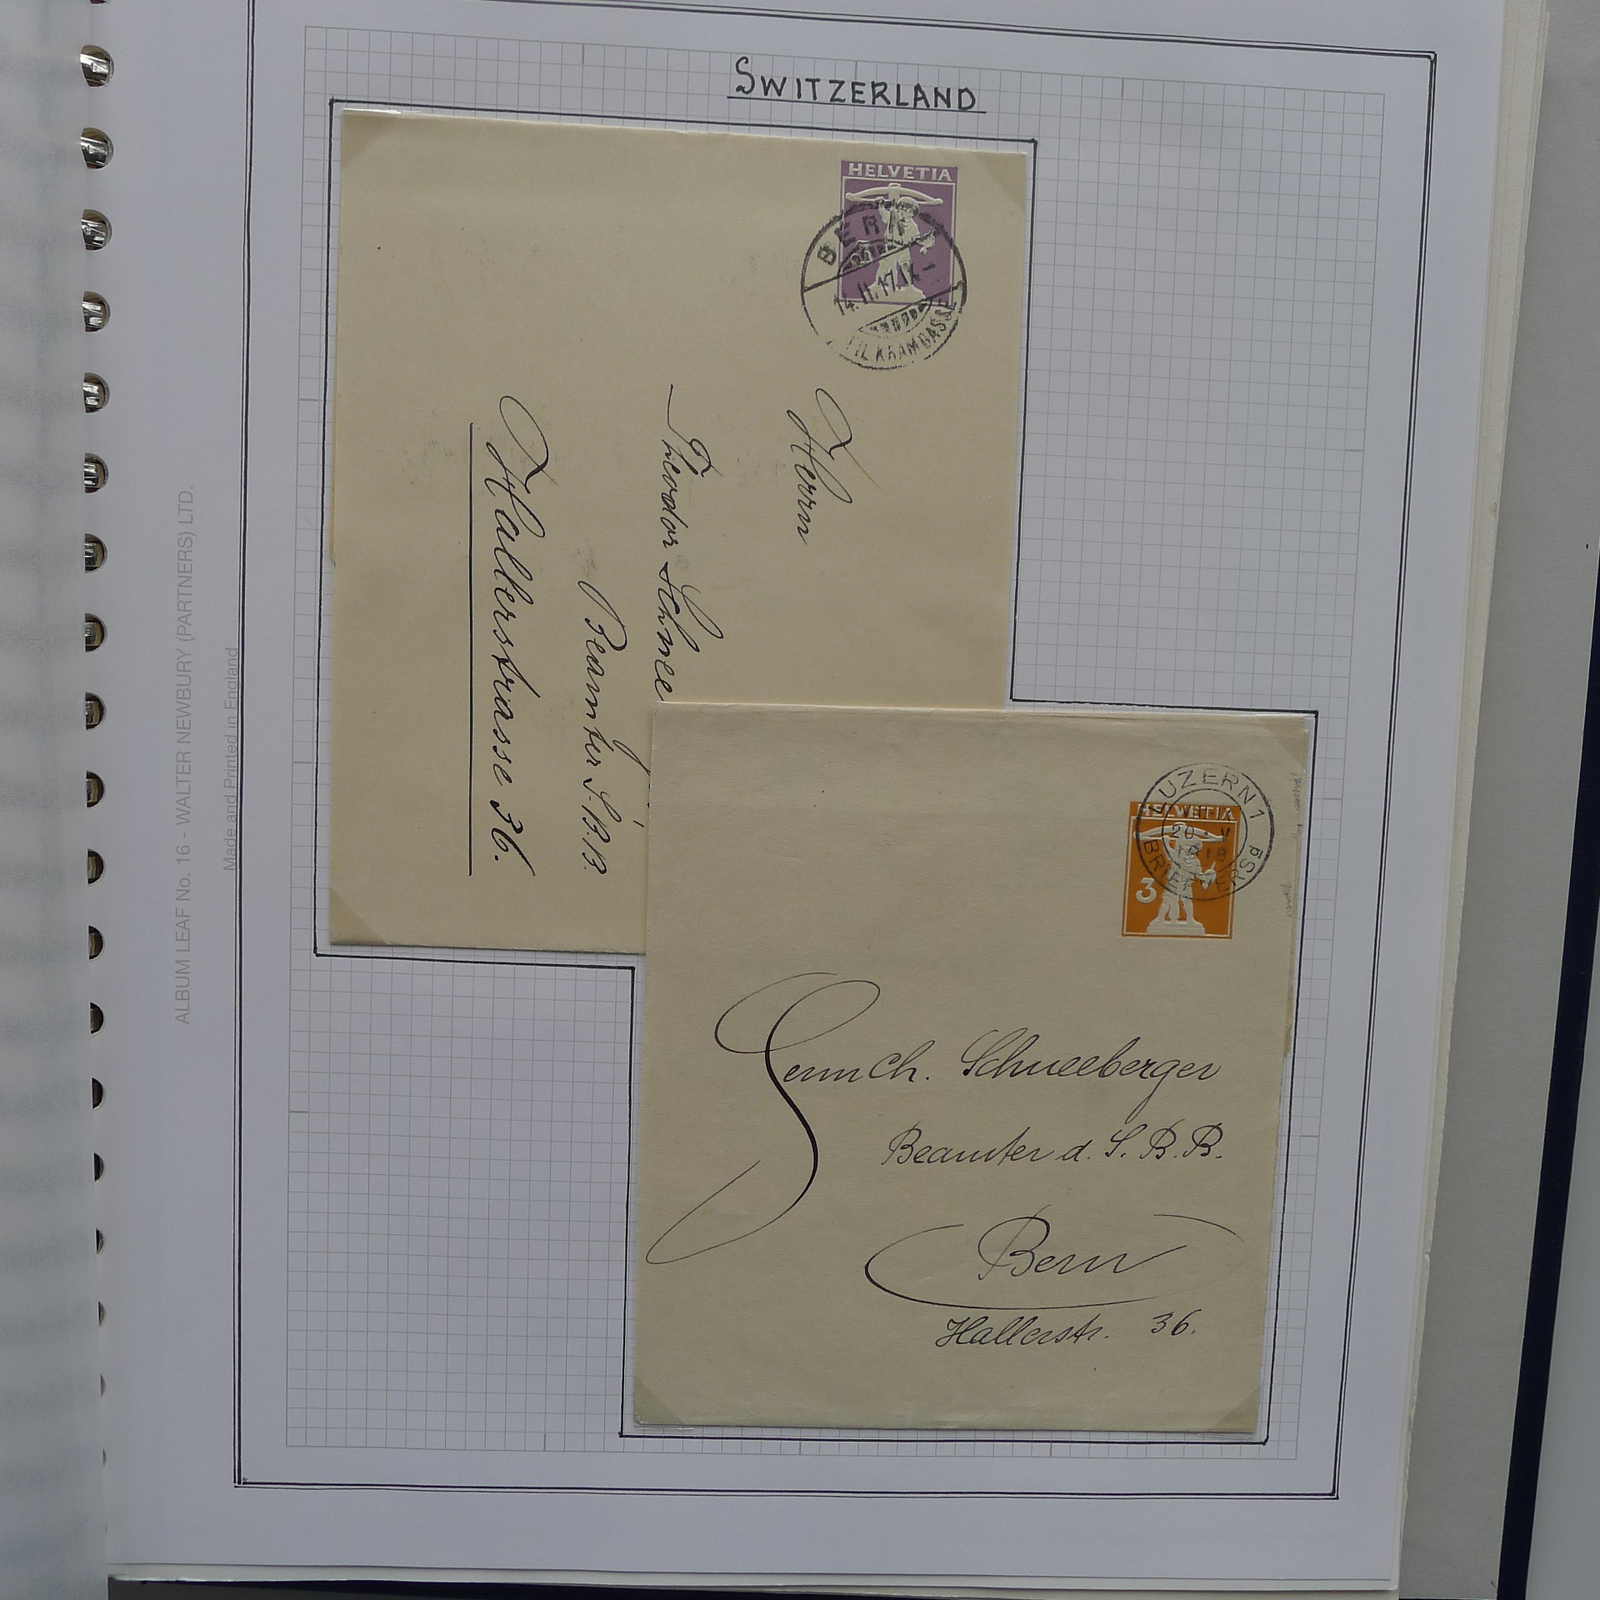 SWITZERLAND
HELVETIA
BERN
14.II.17.IX-
FIL. KRAMGASSE
Herrn
Theodor Schnee
Beamter S.B.B.
Hallerstrasse 36.
LUZERN 1
HELVETIA
20 V
3
Herrn Ch. Schneeberger
Beamter d. S. B. B.
Bern
Hallerstr. 36.
ALBUM LEAF No. 16 - WALTER NEWBURY (PARTNERS) LTD.
Made and Printed in England